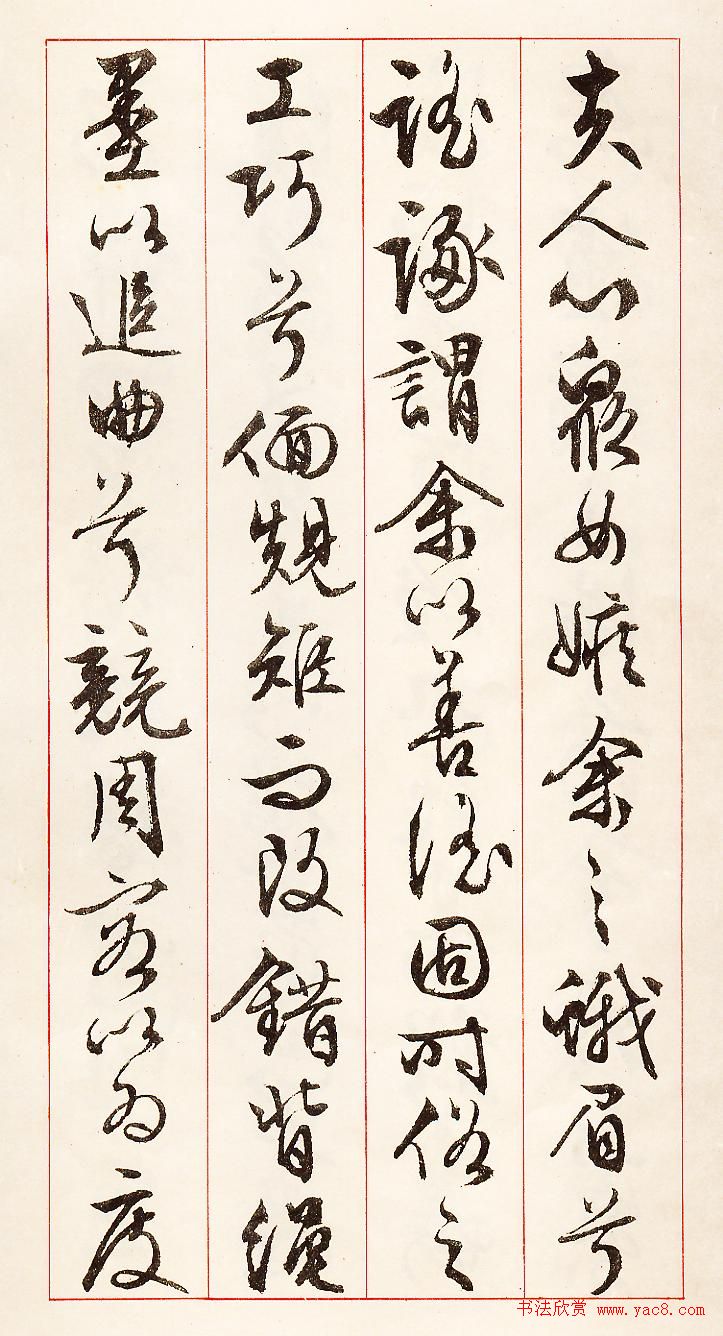 夫人心衆女嫉余之蛾眉兮
謠諑謂余以善淫固時俗之
工巧兮偭規矩而改錯背繩
墨以追曲兮競周容以為度
书法欣赏 www.yac8.com